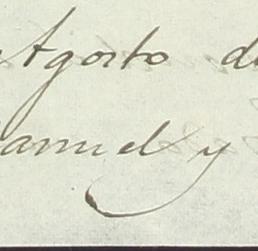 Agosto de
anuel y